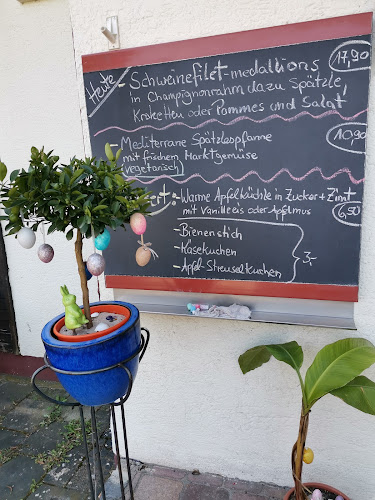 Heute - Schweinefilet-medallions 17,90
in Champignonrahm dazu Spätzle,
Kroketten oder Pommes und Salat,
- Mediterrane Spätzlepfanne 10,90
mit frischem Marktgemüse
vegetarisch
- Warme Apfelküchle in Zucker + Zimt
mit Vanilleeis oder Apfelmus 6,50
- Bienenstich
- Käsekuchen 3,-
- Apfel-Streuselkuchen